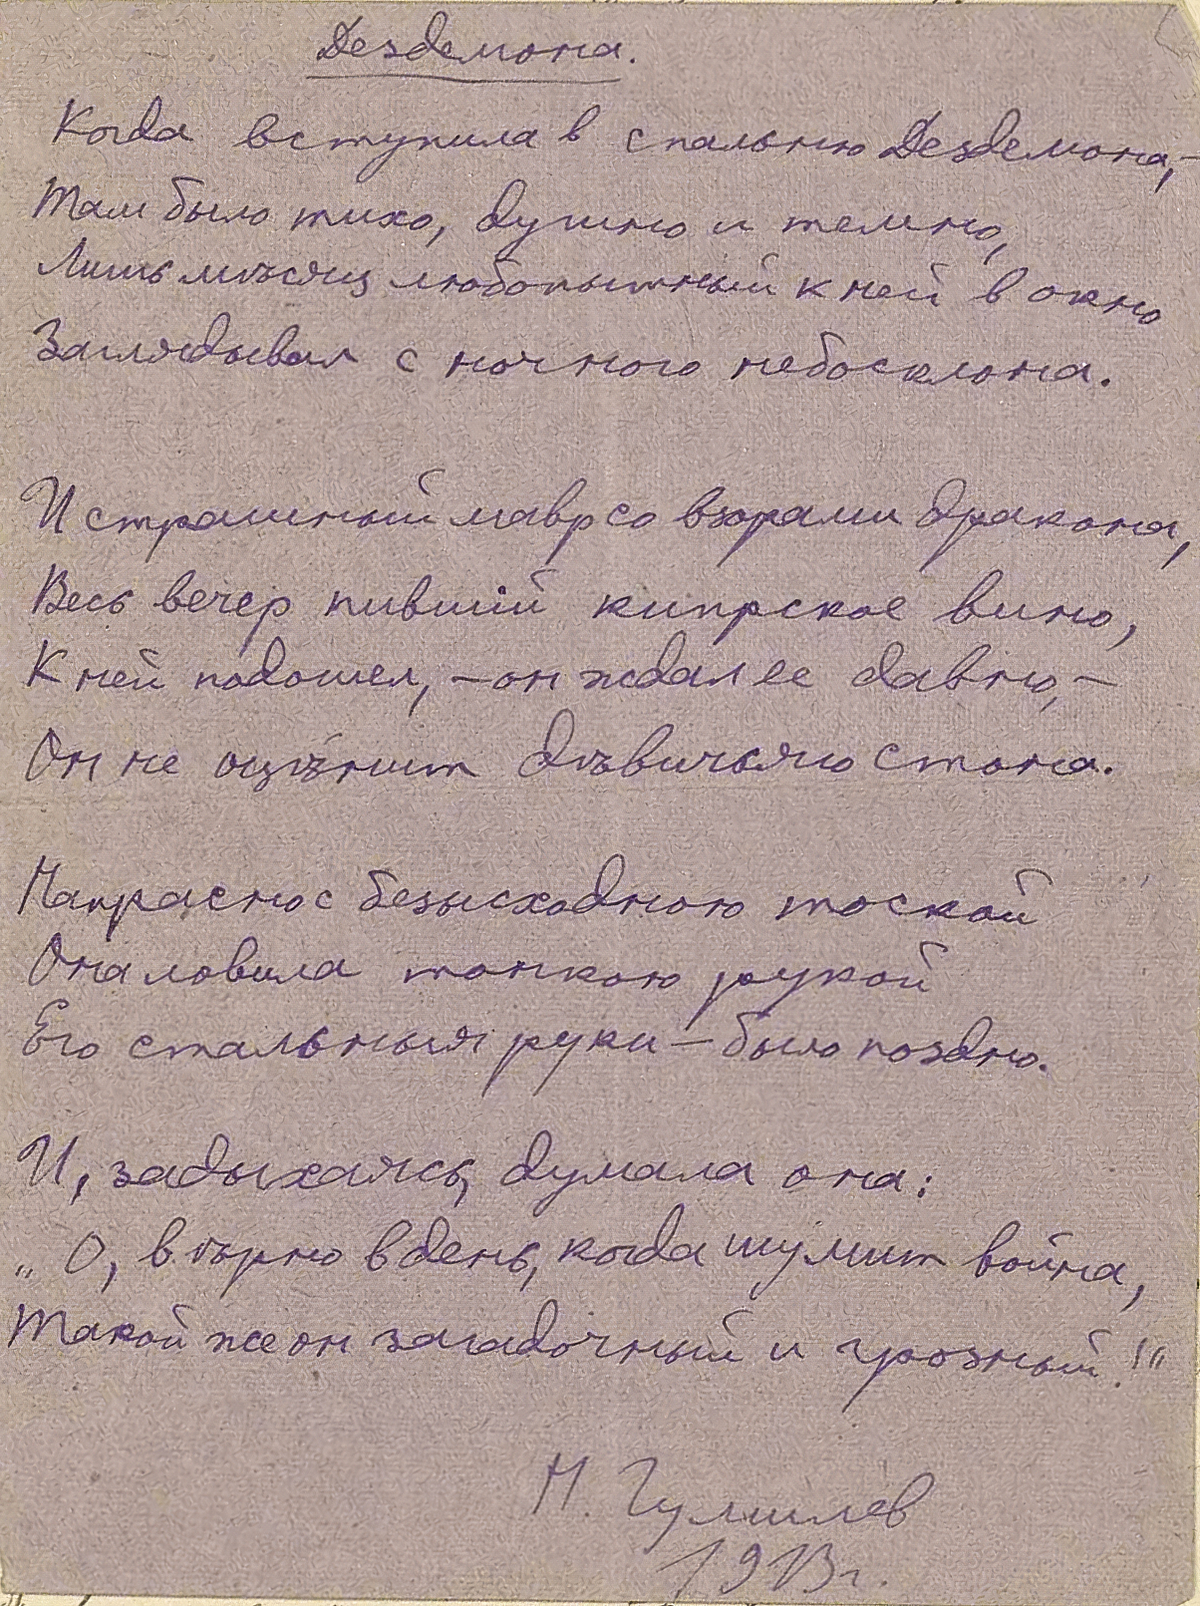 Дездемона.
Когда вступила в спальню Дездемона,—
Там было тихо, душно и темно,
Лишь мѣсяц любопытный к ней в окно
Заглядывал с ночного небосклона.
И страшный мавр со взорами дракона,
Весь вечер пивший кипрское вино,
К ней подошел, — он ждал ее давно, —
Он не оцѣнит дѣвичьяго стона.
Напрасно с безысходною тоской
Она ловила тонкою рукой
Его стальныя руки — было поздно.
И, задыхаясь, думала она:
„О, вѣрно в день, когда шумит война,
Такой же он загадочный и грозный!“
Н. Гумилев
1913 г.